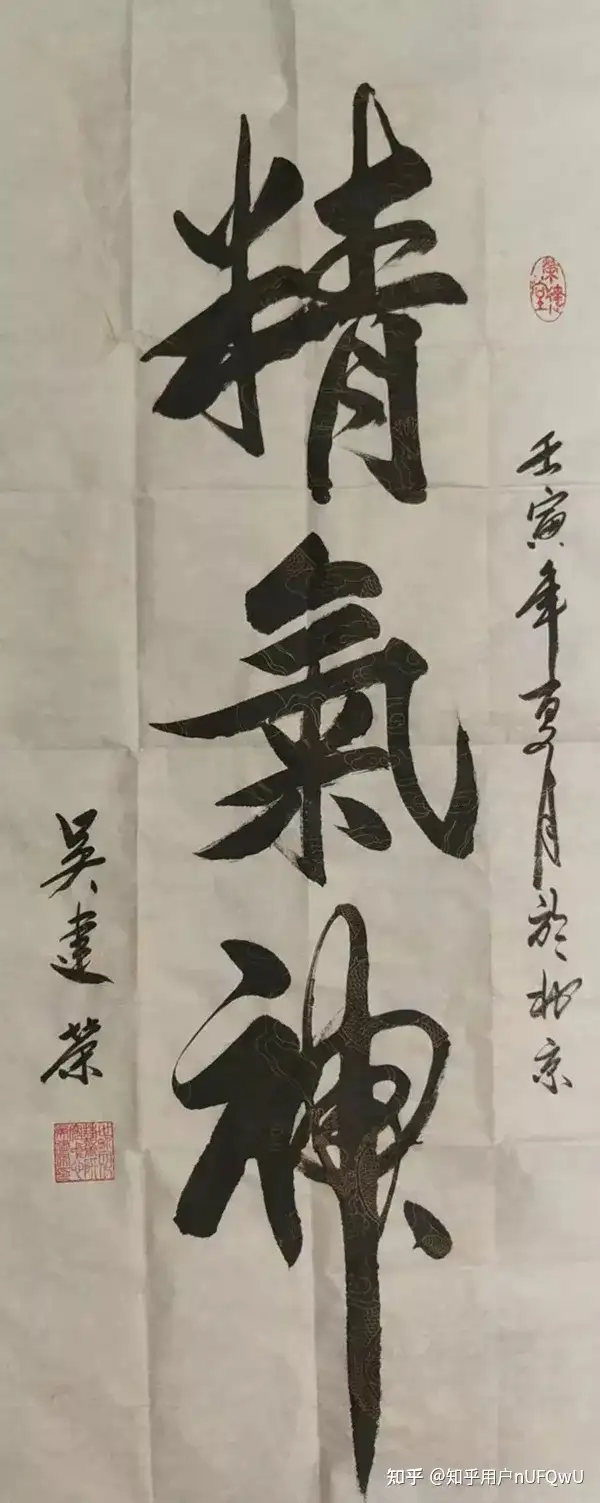 壬寅年夏月於北京
精氣神
吳建榮
知乎 @知乎用户nUFQwU